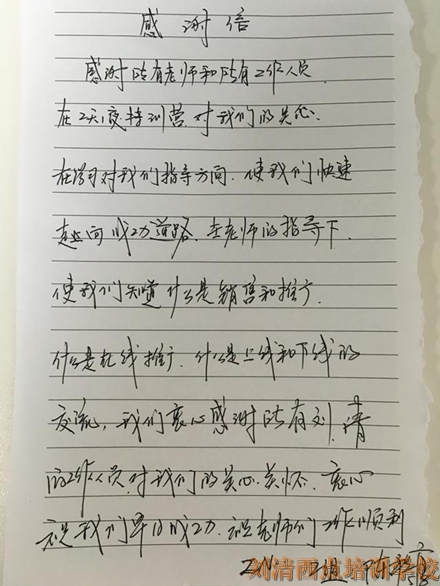 感谢信
感谢所有老师和所有工作人员
在2天1夜特训营对我们的关心.
在学习对我们指导方向.使我们快速
走向成功道路.在老师的指导下.
使我们知道什么是销售和推广.
什么是在线推广.什么是上线和下线的
交流,我们衷心感谢所有刘清
的工作人员对我们的关心关怀.衷心
祝我们早日成功.祝老师们工作顺利
2组
刘清西点培训学校